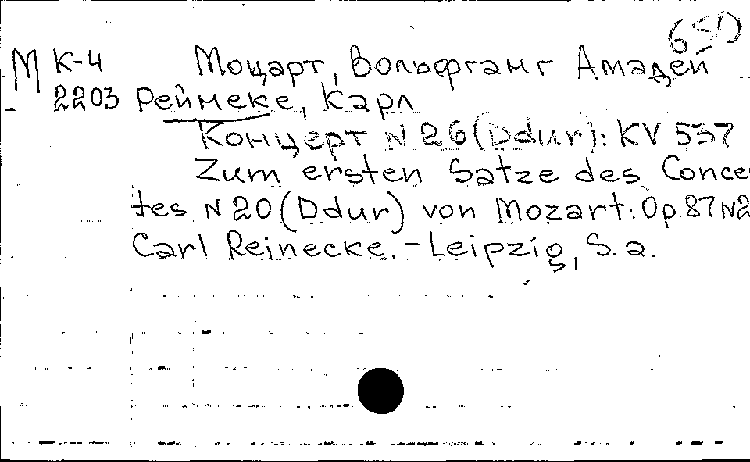 М К-4 Моцарт, Вольфганг Амадей
2203 Рейнеке, Карл
Концерт N 26 (Ddur): KV 537
Zum ersten Satze des Conce
tes N 20 (Ddur) von Mozart: Op 87 N2
Carl Reinecke. - Leipzig, S. a.